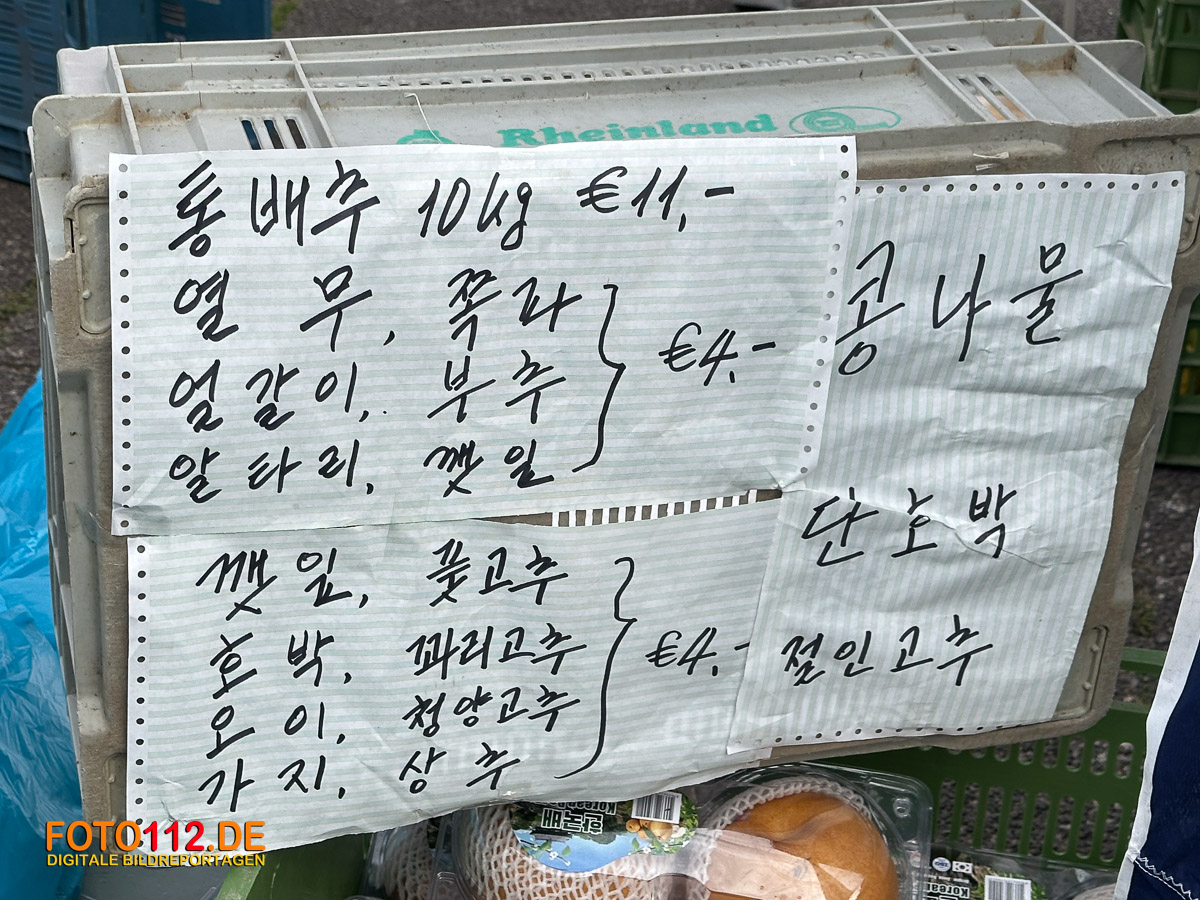 Rheinland
통배추 10kg €11,-
열무, 쪽파
얼갈이, 부추
알타리, 깻잎
€4,-
콩나물
단호박
절인고추
깻잎, 풋고추
호박, 꽈리고추
오이, 청양고추
가지, 상추
€4,-
한국배
Korean
FOTO112.DE
DIGITALE BILDREPORTAGEN